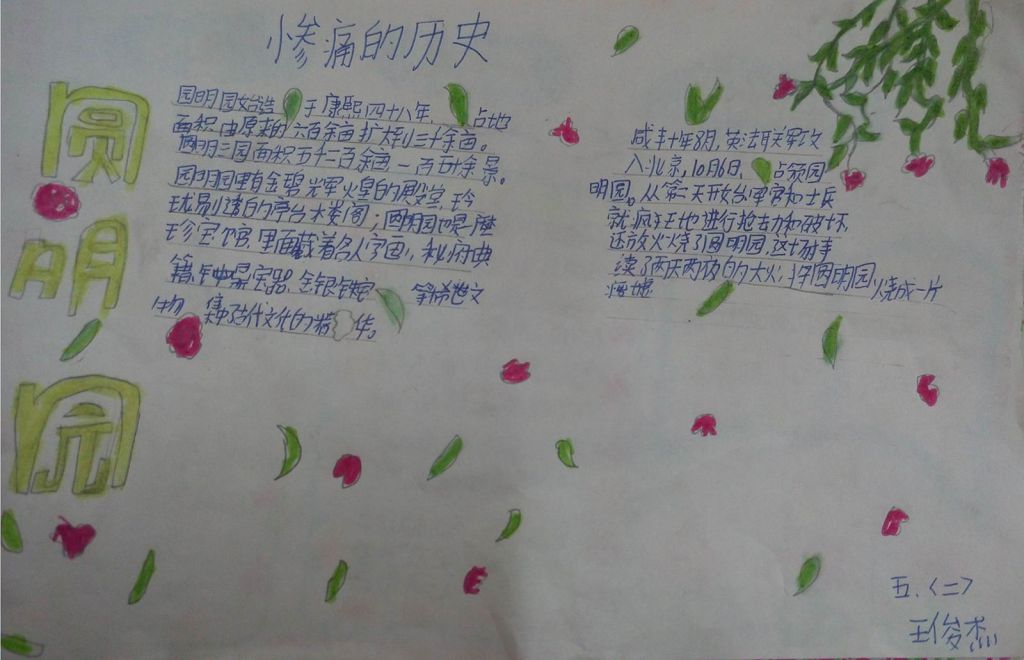 惨痛的历史
圆明园
圆明园始造于康熙四十八年 占地
面积由原来的六百余亩扩大到三千余亩。
圆明三园面积五千二百余亩一百五十余景。
圆明园里有金碧辉煌的殿堂,玲
珑剔透的亭台楼阁;圆明园也是座
珍宝馆,里面藏着名人字画,秘府典
籍,钟鼎宝器,金银珠宝 等稀世文
物,集中了古代文化的精华。
咸丰十年8月,英法联军攻
入北京,10月6日、占领圆
明园。从第二天开始军官和士兵
就疯狂地进行抢劫和破坏
还放火烧了圆明园,这场
续了两天两夜的大火,将圆明园烧成一片
废墟
五.(二)
王俊杰